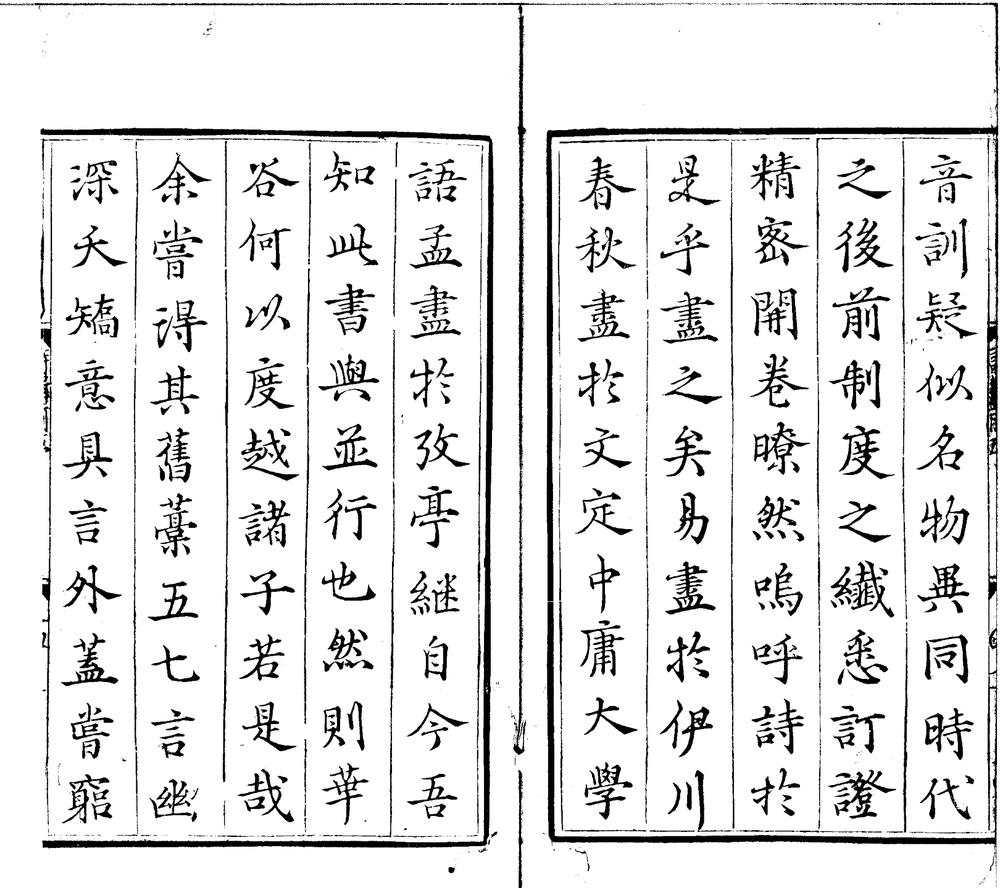 音訓疑似名物異同時代
之後前制度之纖悉訂證
精密開卷瞭然嗚呼詩於
是乎盡之矣易盡於伊川
春秋盡於文定中庸大學
語孟盡於攷亭繼自今吾
知此書與並行也然則華
谷何以度越諸子若是哉
余嘗得其舊藳五七言幽
深夭矯意具言外蓋嘗窮